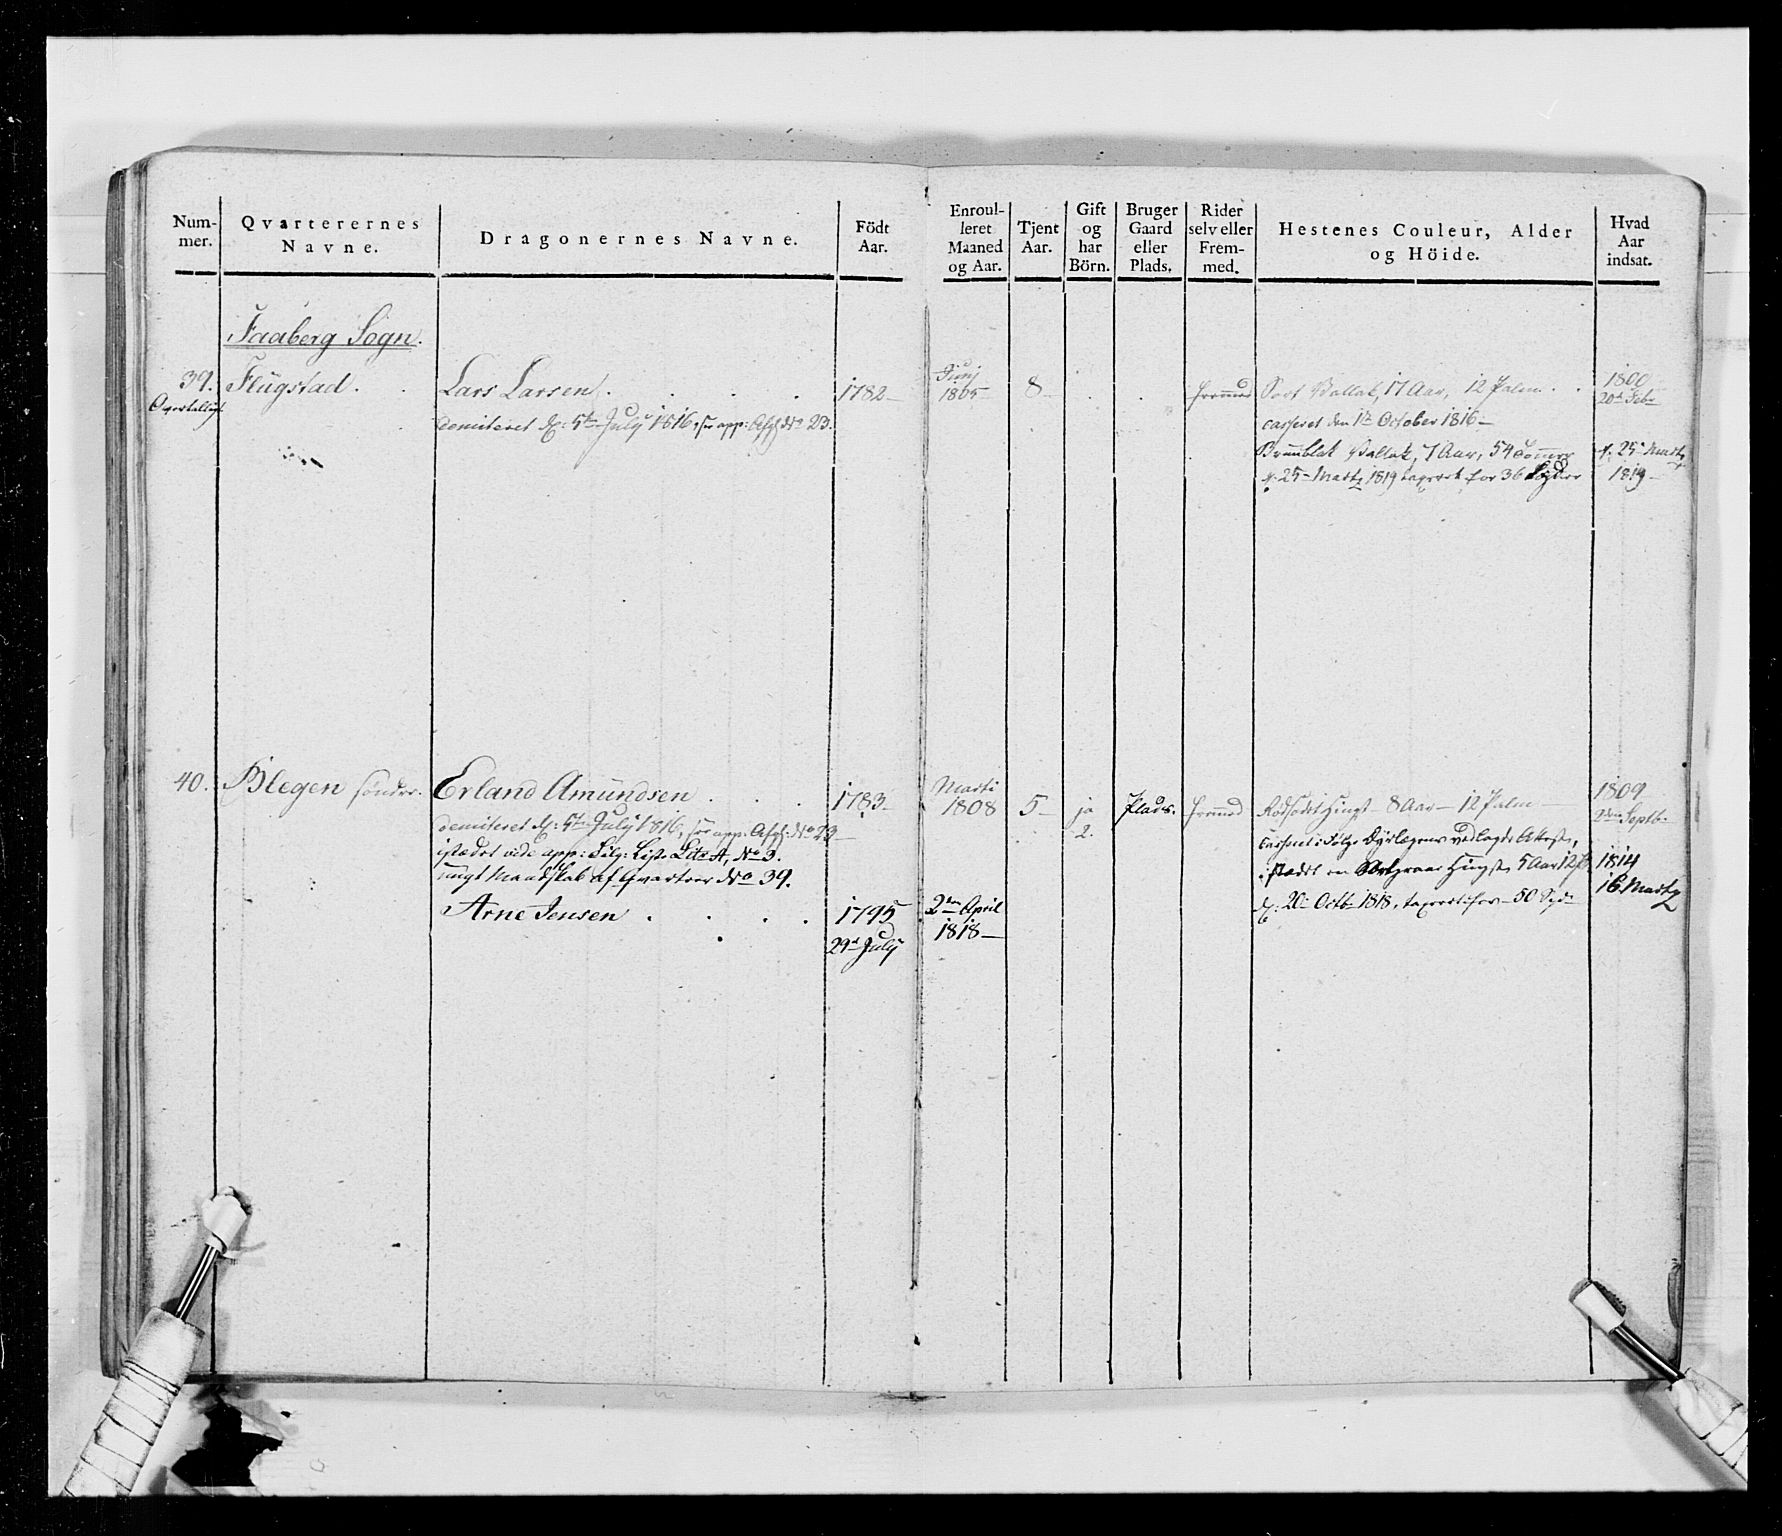 Num-
mer.
Qvarterernes
Navne.
Dragonernes Navne.
Födt
Aar.
Enroul-
leret
Maaned
og Aar.
Tjent
Aar.
Gift
og
har
Börn.
Bruger
Gaard
eller
Plads.
Rider
selv eller
Frem-
med.
Hestenes Couleur, Alder
og Höide.
Hvad
Aar
indsat.
Faaberg Sogn.
39. Flugstad. Lars Larsen. 1782 Junj 1805 8 fremmed Sort Vallak, 17 Aar, 12 Palm. 1800
20de Febr
demiteret d: 5te July 1816, app: No 23.
casseret den 1te October 1816
Brunblak Vallak, 7 Aar, 54 Tommer d. 25 Martz
d. 25 Martz 1819 taxeret for 36 1819
40. Blegen söndre. Erland Amundsen 1783 Marti 1808 5 ja 2. Plads. fremmed Rödsödet Hingst 8 Aar 12 Palm 1809
Septb.
demiteret d: 5te July 1816, app: No 23
istædet vide app: Liste Litr A, No 3.
Mandskab af Qvarteer No 39.
istædet en Hingst, 5 Aar 12 1814
16 Martz
Arne Jensen 1795 2den April
29de July 1818
d: 20 Octb: 1818, taxeret for 50